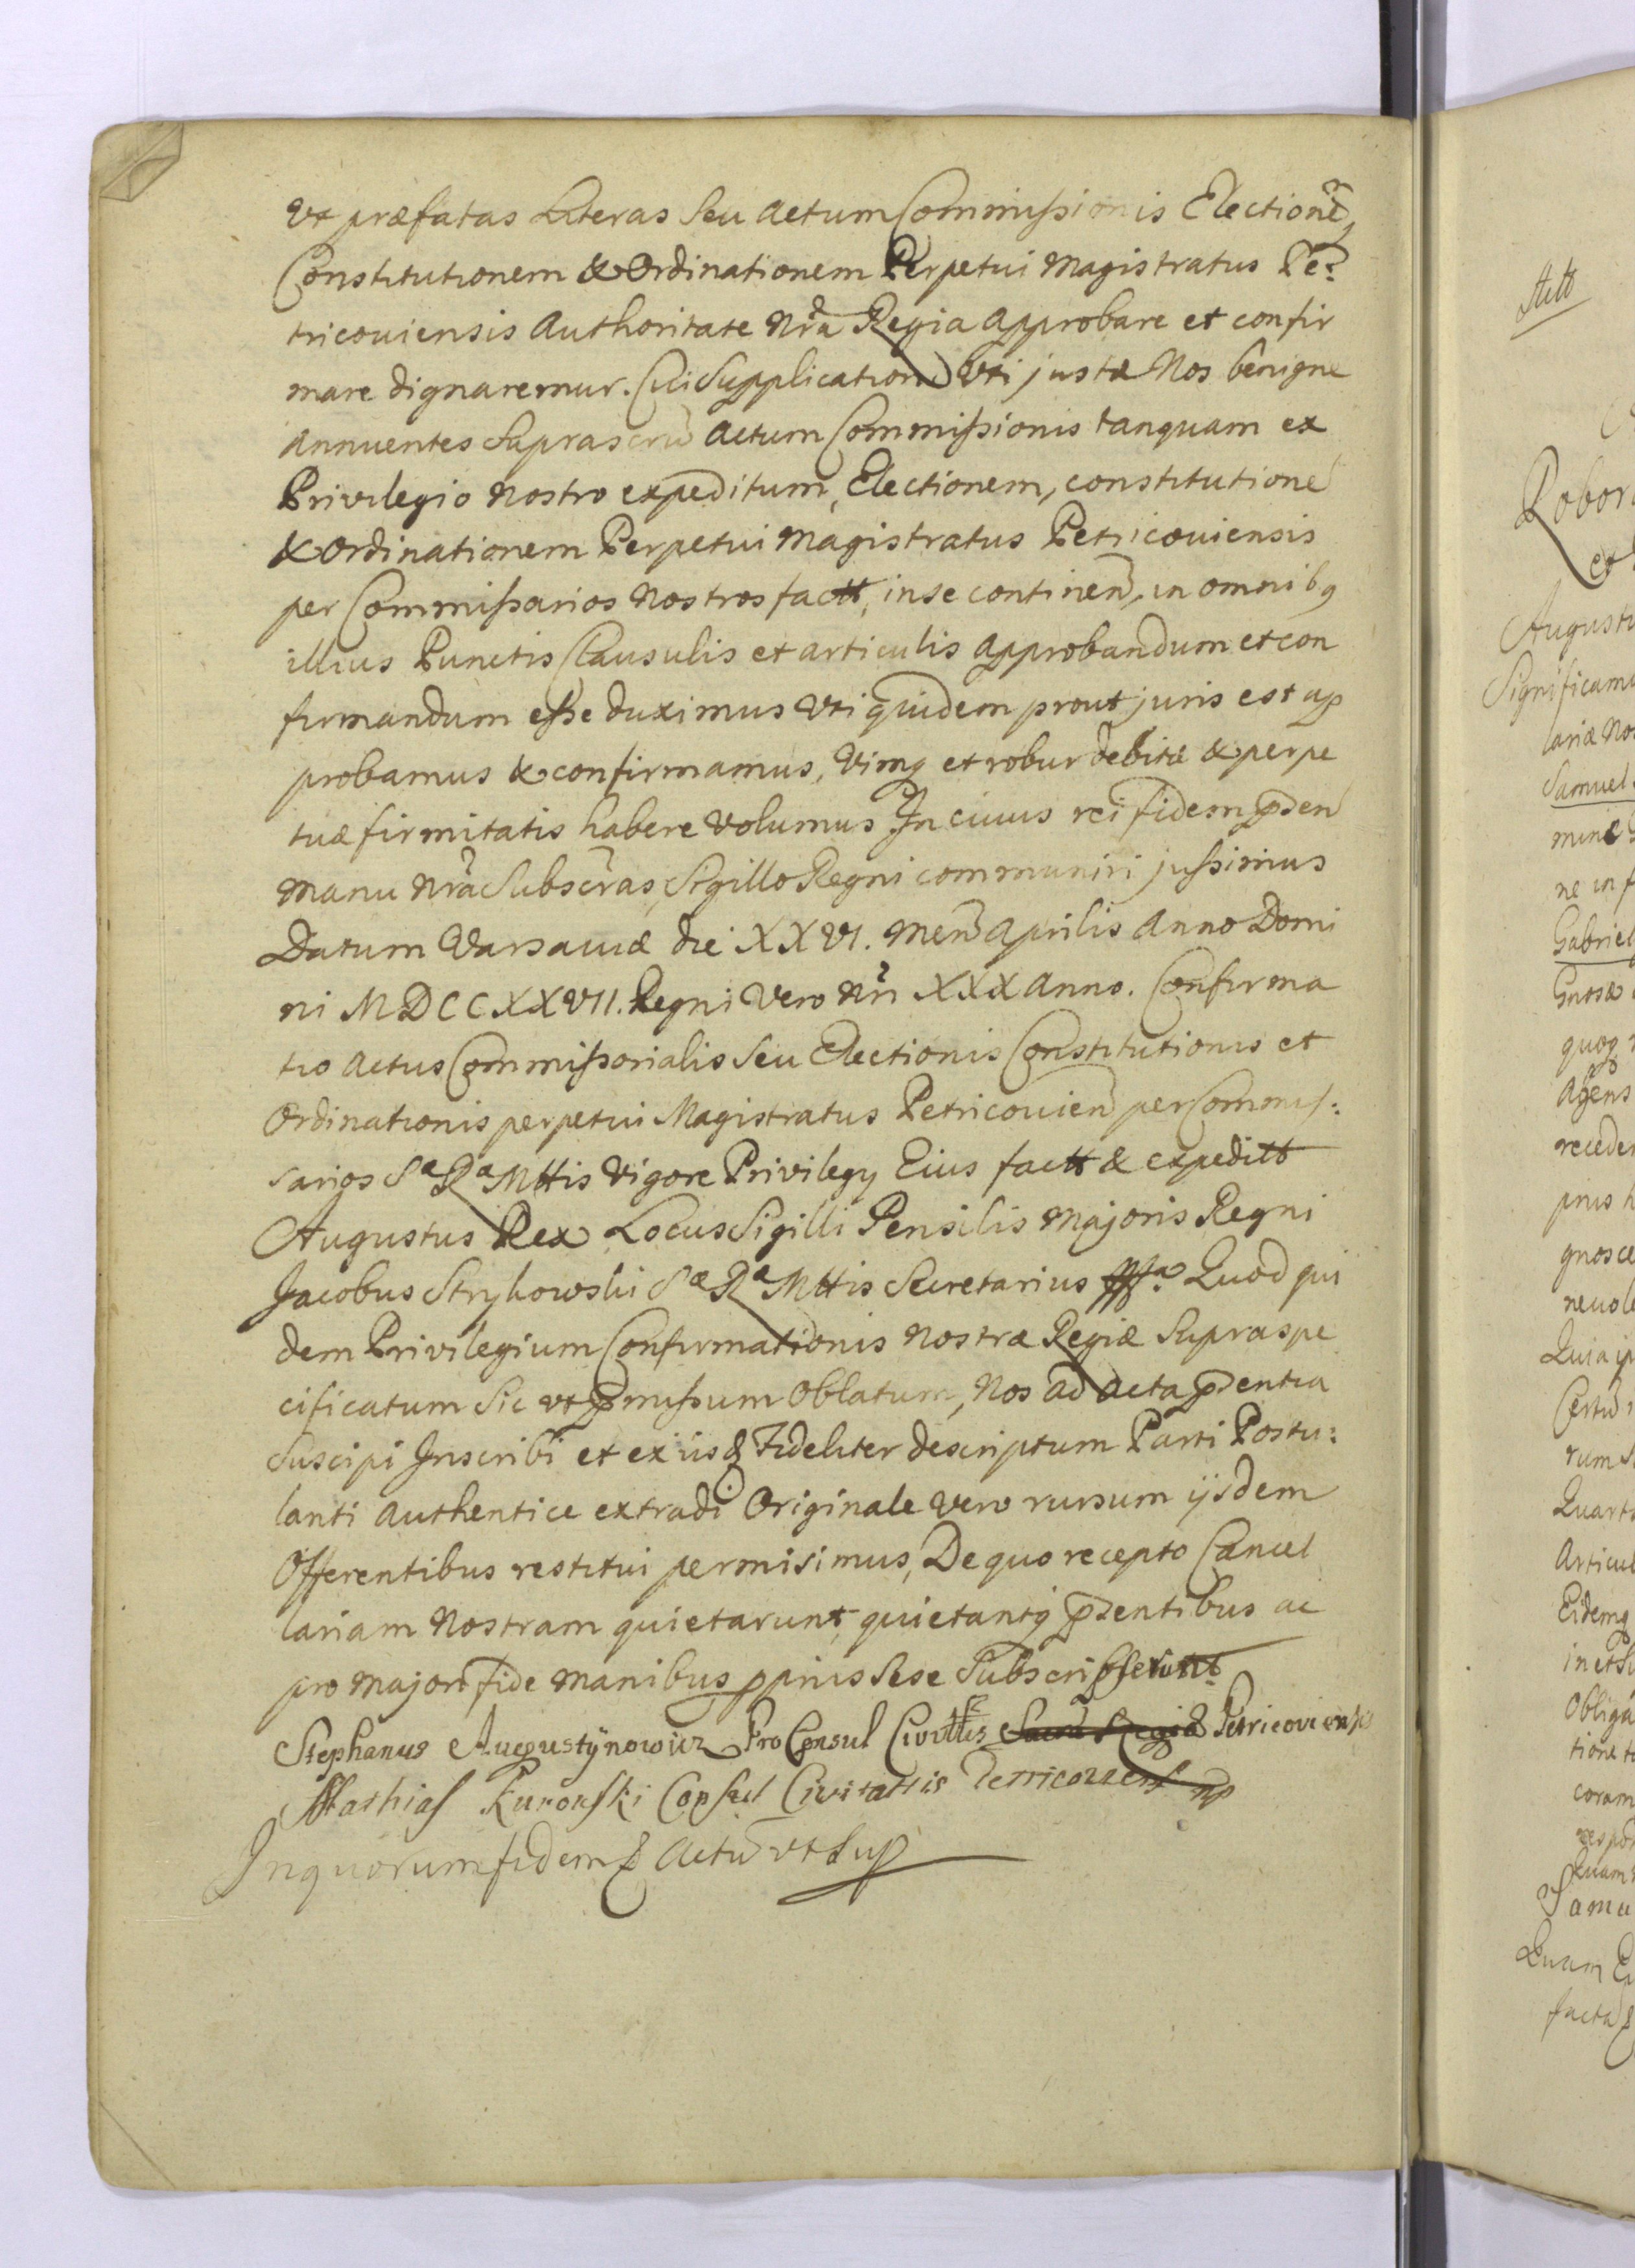 Ut præfatas Literas Seu Actum Commissionis Electionẽ,
Constitutionem & Ordinationem Perpetui Magistratus Pe:
tricoviensis Authoritate Nrã Regia Approbare et confir
mare dignaremur. Cui Supplicationi Uti justæ Nos benigne
Annuentes Suprascrũ Actum Commissionis tanquam ex
Privilegio Nostro expeditum, Electionem, constitutionẽ
& Ordinationem Perpetui Magistratus Petricoviensis
per Commissarios Nostros factt, in se continen, in omnibq
illius Punctis Clausulis et articulis Approbandum et con
firmandum esse duximus Uti quidem prout juris est ap
probamus & confirmamus, Vimq et robur debitæ & perpe
tuæ firmitatis habere volumus In cuius rei fidem p̃sen
manu Nrã Subscr̃as, Sigillo Regni communiri jussimus
Datum Varsaviæ die XXVI. Men Aprilis Anno Domi
ni MDCCXXVII. Regni Vero Nri XXX Anno. Confirma
tio Actus Commissorialis Seu Electionis Constitutionis et
Ordinationis perpetui Magistratus Petricovien per Commis:
sarios Sæ Ræ Mttis Vigore Privilegy Eius factt & expeditt
Augustus Rex Locus Sigilli Pensilis Majoris Regni
Jacobus Strykowski Sæ Ræ Mttis Secretarius Quod qui
dem Privilegium Confirmationis Nostræ Regiæ Supraspe
cificatum Sic ut p̃missum Oblatum, Nos ad Acta p̃sentia
Suscipi Inscribi et ex iisq Fideliter descriptum Parti Postu:
lanti Authentice extradi Originale Vero rursum ijsdem
Offerentibus restitui permisimus, De quo recepto Cancel
lariam Nostram quietarunt, quietantq p̃sentibus ac
pro majori fide Manibus pprius Sese Subscripserunt
Stephanus Augustÿnowicz ProConsul Civittis Petricoviensis
Mathias Kuronski Consul Civitattis Petricoviens mp
In quorum fidem & Actũ ut Sup
Actt
Robor
et
Augustu
Significamu
lariæ Nos
Samuel
minæ
ne in f
Gabriel
quoq
Agens
receden
prius h
gnosce
nevole
Quia ip
Certu
rum S
Quart
Articul
Eidemq
in et Su
Obliga
tione
coram
respon
Quam
Samu
Quam E
facta &